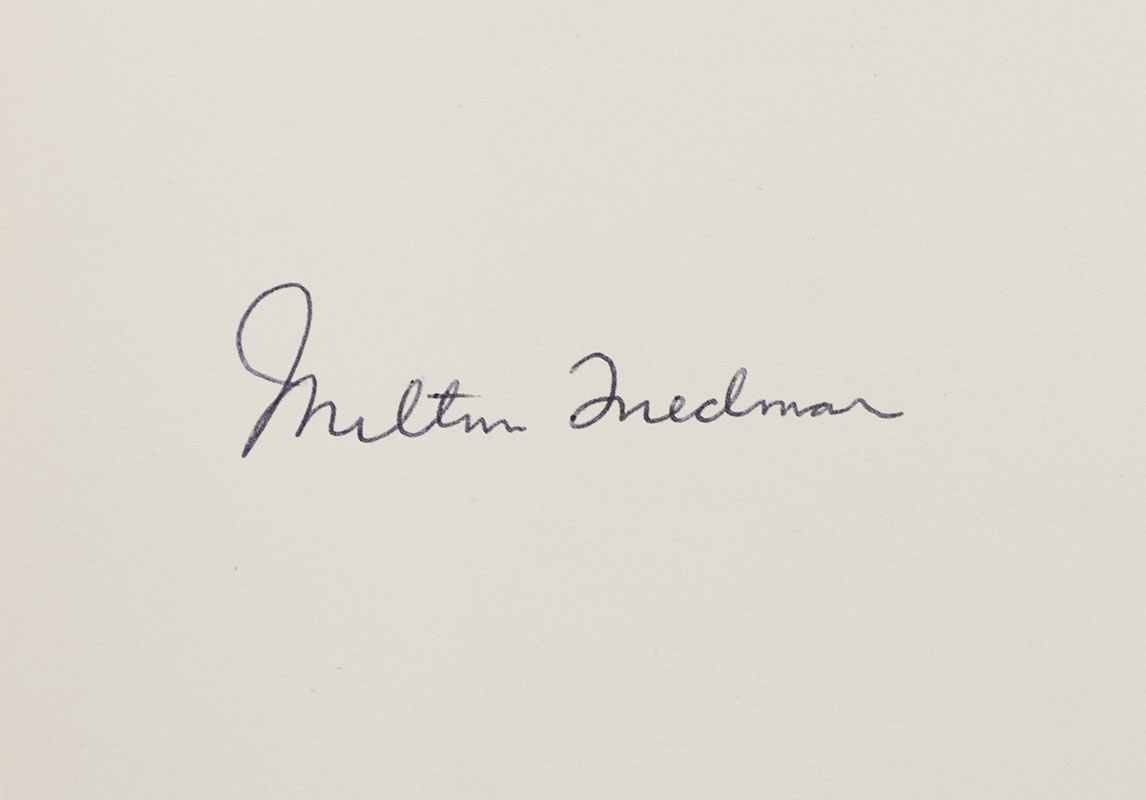 Milton Friedman